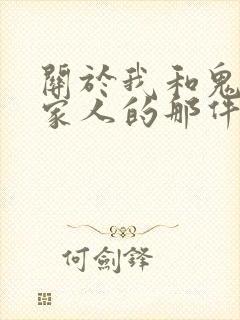 關於我和鬼
家人的那件
何劍鋒